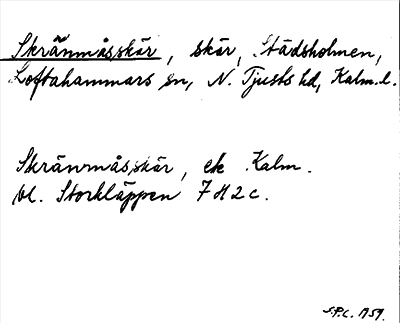 Skränmåsskär, skär, Städsholmen,
Loftahammars sn, N. Tjusts hd, Kalm. l.
Skränmåsskär, ek Kalm.
bl. Storkläppen 7 H 2 c.
S.P.L. 1959.